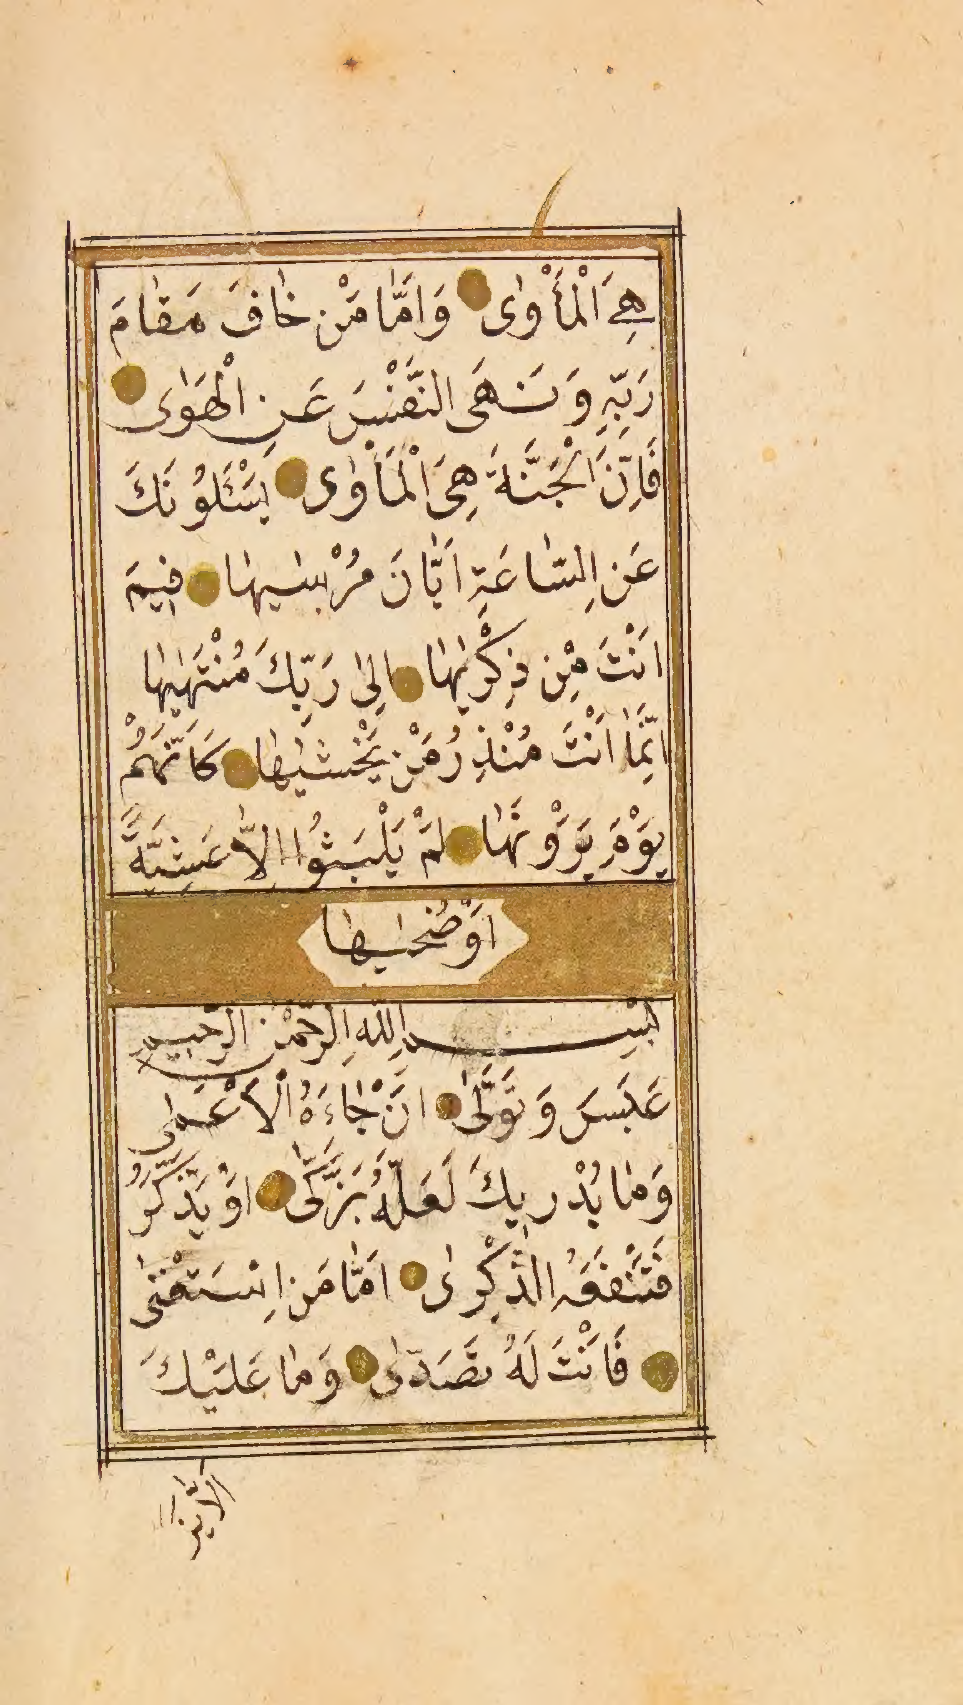 هِيَ الْمَأْوٰى وَاَمَّا مَنْ خَافَ مَقَامَ
رَبِّهِ وَنَهَى النَّفْسَ عَنِ الْهَوٰى
فَاِنَّ الْجَنَّةَ هِىَ الْمَأْوٰى يَسْئَلُونَكَ
عَنِ السَّاعَةِ اَيَّانَ مُرْسٰيهَا فِيمَ
اَنْتَ مِنْ ذِكْرٰيهَا اِلٰى رَبِّكَ مُنْتَهٰيهَا
اِنَّمَا اَنْتَ مُنْذِرُ مَنْ يَخْشٰيهَا كَاَنَّهُمْ
يَوْمَ يَرَوْنَهَا لَمْ يَلْبَثُوا اِلَّا عَشِيَّةً
اَوْ ضُحٰيهَا
بِسْمِ اللّٰهِ الرَّحْمٰنِ الرَّحِيمِ
عَبَسَ وَتَوَلّٰى اَنْ جَاءَهُ الْاَعْمٰى
وَمَا يُدْرِيكَ لَعَلَّهُ يَزَّكّٰى اَوْ يَذَّكَّرُ
فَتَنْفَعَهُ الذِّكْرٰى اَمَّا مَنِ اسْتَغْنٰى
فَاَنْتَ لَهُ تَصَدّٰى وَمَا عَلَيْكَ